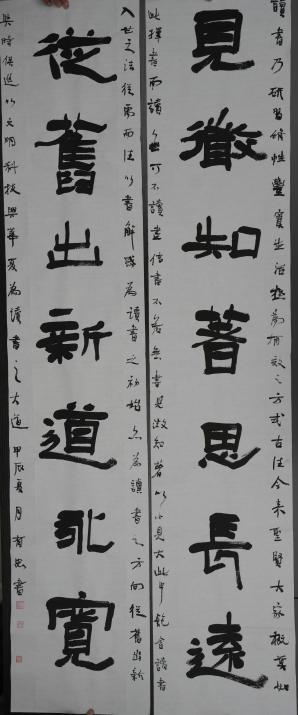 讀書乃研習修性豐實生活極為有效之方式古往今來聖賢大家概莫如
見微知著思長遠
此擇書而讀可不讀盡信書不若無書見微知著以小見大此中飽含讀者
入世之法從而法以書解惑為讀書之初始亦為讀書之方向從舊出新
從舊出新道永寬
與時俱進以文明科技興華夏為讀書之大道甲辰夏月書